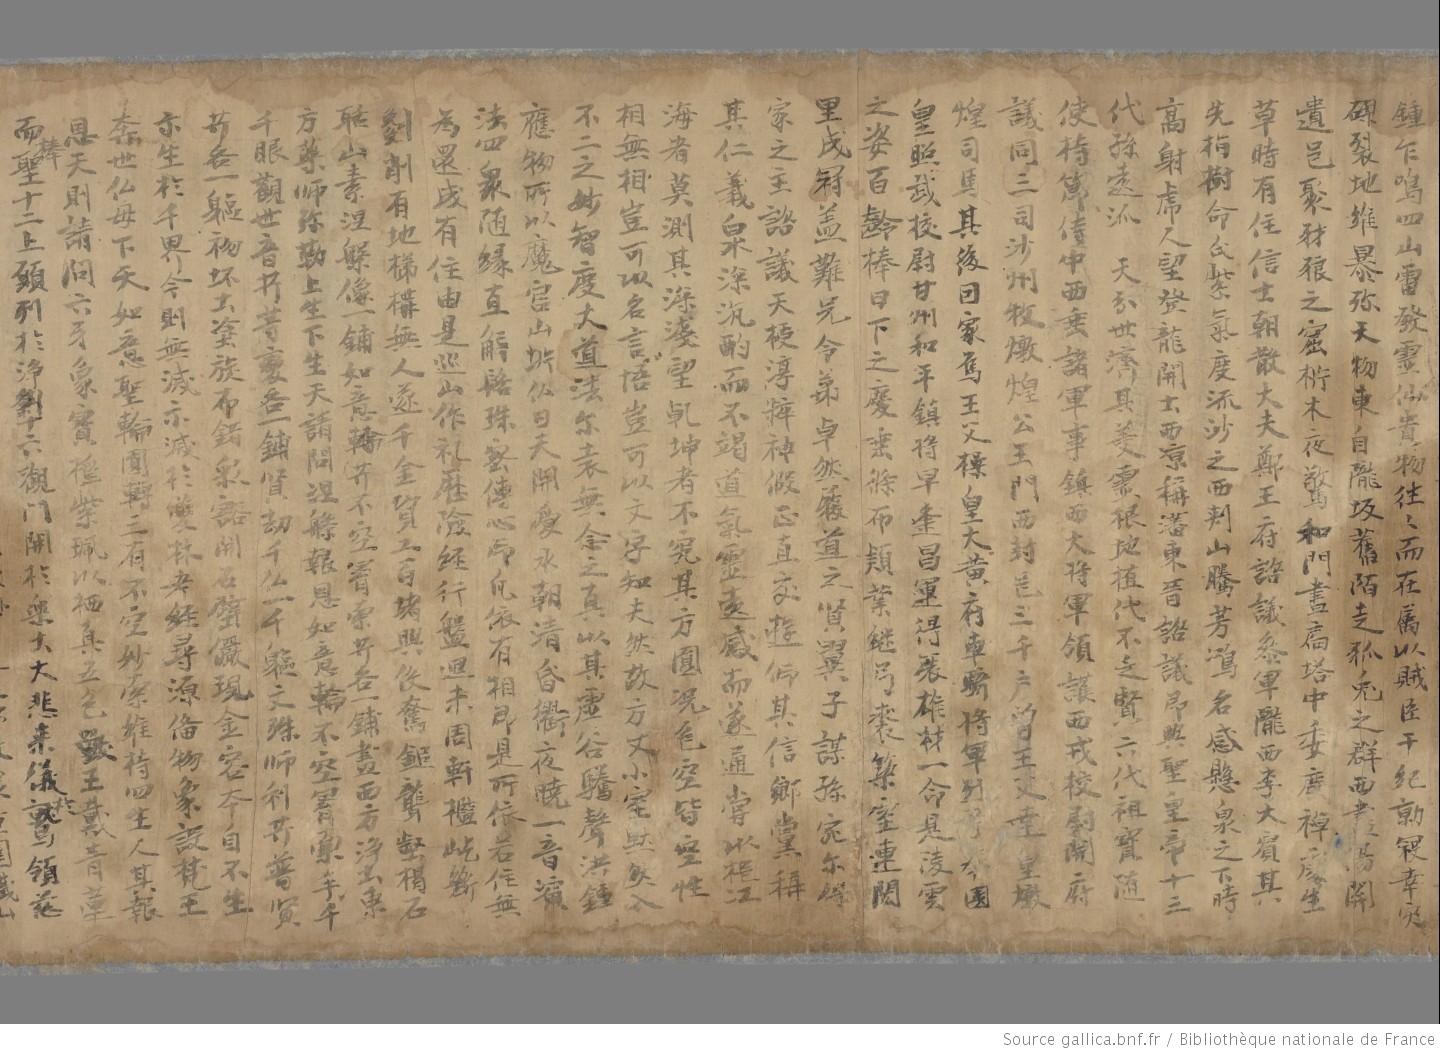 鍾乍鳴四山雷發靈仙貴物往〻而在舊以賊臣干紀勍寇幸災
磔裂地維暴殄天物東自隴坂舊陌走狐兔之群西陽關
遺邑聚豺狼之窟柝木夜驚和門晝扃塔中委塵禪處生
草時有住信士朝散大夫鄭王府諮議參軍隴西李大賓其
先指樹命氏紫氣度流沙之西刺山騰芳鴻名感懸泉之下時
高射虎人望登龍開土西涼稱藩東晉諮議即興聖皇帝十三
代孫遠派天分世濟其美靈根地植代不乏賢六代祖寶隨
使持節侍中西垂諸軍事鎮西大將軍領護西戎校尉開府
議同三司沙州牧燉煌公玉門西封邑三千戶曾王父達皇燉
煌司馬其後因家焉王父操皇大黃府車騎將軍
皇昭武校尉甘州和平鎮將早逢昌運得展雄材一命是凌雲
之姿百齡棒日下之慶垂條布穎業繼弓裘築室連閎
里成冠蓋難兄令弟卓然履道之賢翼子謀孫宛尔
家之主諮議天授淳粹神假正直交遊仰其信鄉黨稱
其仁義泉深汎酌而不竭道氣靈遠感而遂通嘗以楫江
海者莫測其深淺望乹坤者不究其方圓況色空皆空性
相無相豈可以名言悟豈可以文字知夫然故方丈小室默然入
不二之妙智度大道法尔表無念之真以其虛谷騰聲洪鍾
應物所以魔宮山坼仏日天開愛水朝清昏衢夜曉一音演
法四眾隨緣直解髻珠密傳心印凡依有相即是所依若住無
為還成有住由是巡山作礼歷險經行盤迴未周軒檻屹斷
剗削有地梯構無人遂千金貿工百堵興役奮鎚聾壑揭石
聒山素涅槃像一鋪如意輪𦬇不空羂索𦬇各一鋪畫西方淨土東
方藥師弥勒上生下生天請問涅槃報恩如意輪不空羂索千手千
千眼觀世音𦬇等變各一鋪賢劫千仏一千軀文殊師利𦬇普賢
𦬇各一軀初坯土塗旋布錯彩豁開石壁儼現金容本自不生
示生於千界今則無滅示滅於雙林考經尋源備物象設梵王
奉世仏母下天如意聖輪圓轉三有不空妙索維持四生人其報
恩天則請問六牙象寶捧紫珮以栖真五色獸王戴青蓮
而捧聖十二上願列於淨剎十六觀門開於樂土大悲来儀於鷲領慈